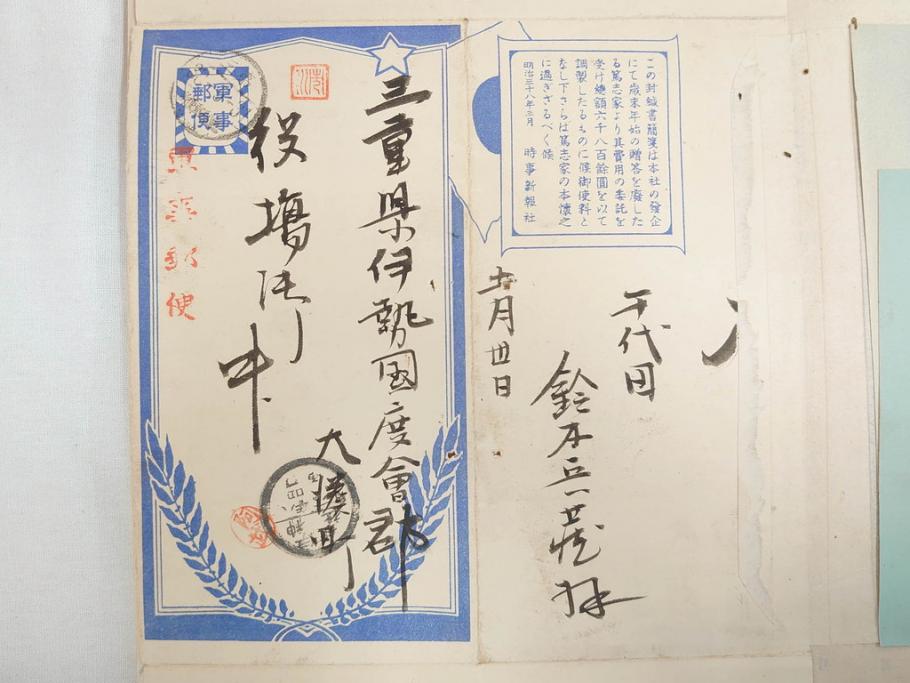 この封緘書簡箋は本社の發企
にて歳末年始の贈答を廢した
る篤志家より其費用の委託を
受け總額六千八百餘圓を以て
調製したるものに候御使料と
なし下さらは篤志家の本懷之
に過ぎざるべく候
明治三十八年二月 時事新報社
軍事
郵便
軍事郵便
三重県伊勢国度會郡
大湊町
役場御中
十一月廿日
千代田
鈴木